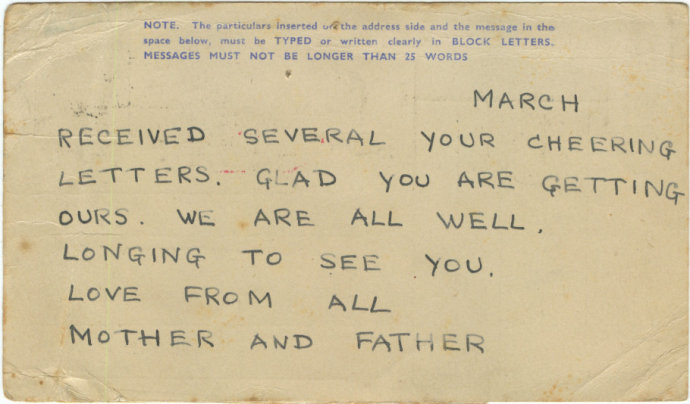 NOTE. The particulars inserted on the address side and the message in the
space below, must be TYPED or written clearly in BLOCK LETTERS.
MESSAGES MUST NOT BE LONGER THAN 25 WORDS
MARCH
RECEIVED SEVERAL YOUR CHEERING
LETTERS. GLAD YOU ARE GETTING
OURS. WE ARE ALL WELL.
LONGING TO SEE YOU.
LOVE FROM ALL
MOTHER AND FATHER